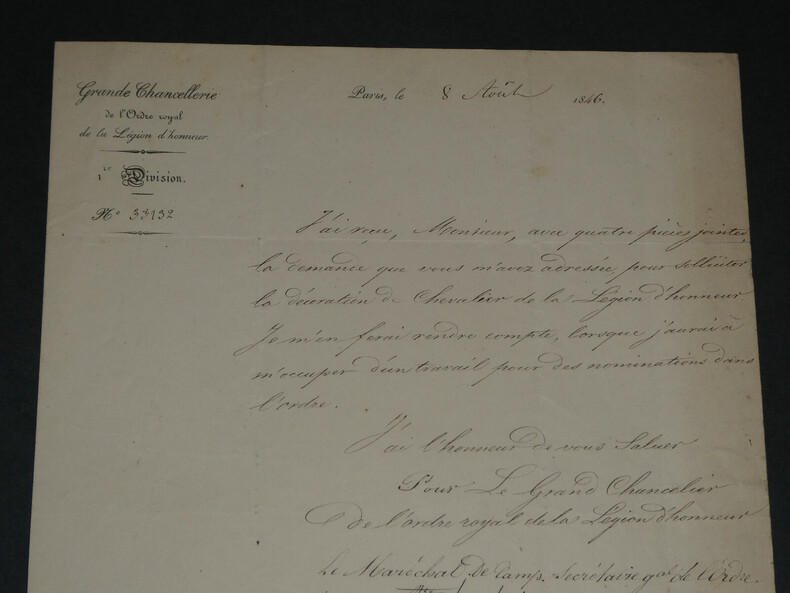 Grande Chancellerie
de l'Ordre royal
de la Légion d'honneur.
1re Division.
No 33132
Paris, le 8 Août 1846.
J'ai reçu, Monsieur, avec quatre pièces jointes,
la demande que vous m'avez adressée, pour solliciter
la décoration de Chevalier de la Légion d'honneur
Je m'en ferai rendre compte, lorsque j'aurai à
m'occuper d'un travail pour des nominations dans
l'ordre.
J'ai l'honneur de vous Saluer
Pour Le Grand Chancelier
de l'ordre royal de la Légion d'honneur
Le Maréchal de Camp, Secrétaire gal de l'Ordre.